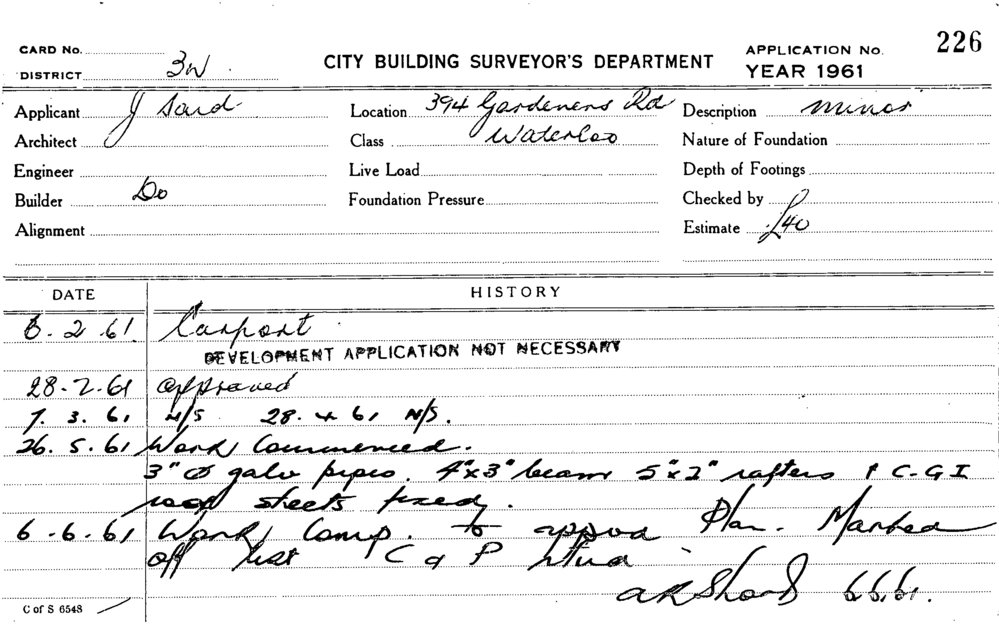 226
CARD No.
DISTRICT 3W
CITY BUILDING SURVEYOR'S DEPARTMENT
APPLICATION No.
YEAR 1961
Applicant J Sard
Location 394 Gardeners Rd
Description minor
Architect
Class Waterloo
Nature of Foundation
Engineer
Live Load
Depth of Footings
Builder Do
Foundation Pressure
Checked by
Alignment
Estimate £40
DATE HISTORY
6.2.61 Carport
DEVELOPMENT APPLICATION NOT NECESSARY
28.2.61 approved
7.3.61 N/S 28.4.61 N/S.
26.5.61 Work Commenced.
3" Ø galv pipes. 4"x3" beam 5"x2" rafters & C.G.I
roof sheets fixed.
6.6.61 Work Comp. to appvd Plan. Marked
off list C of P
6.6.61.
C of S 6548